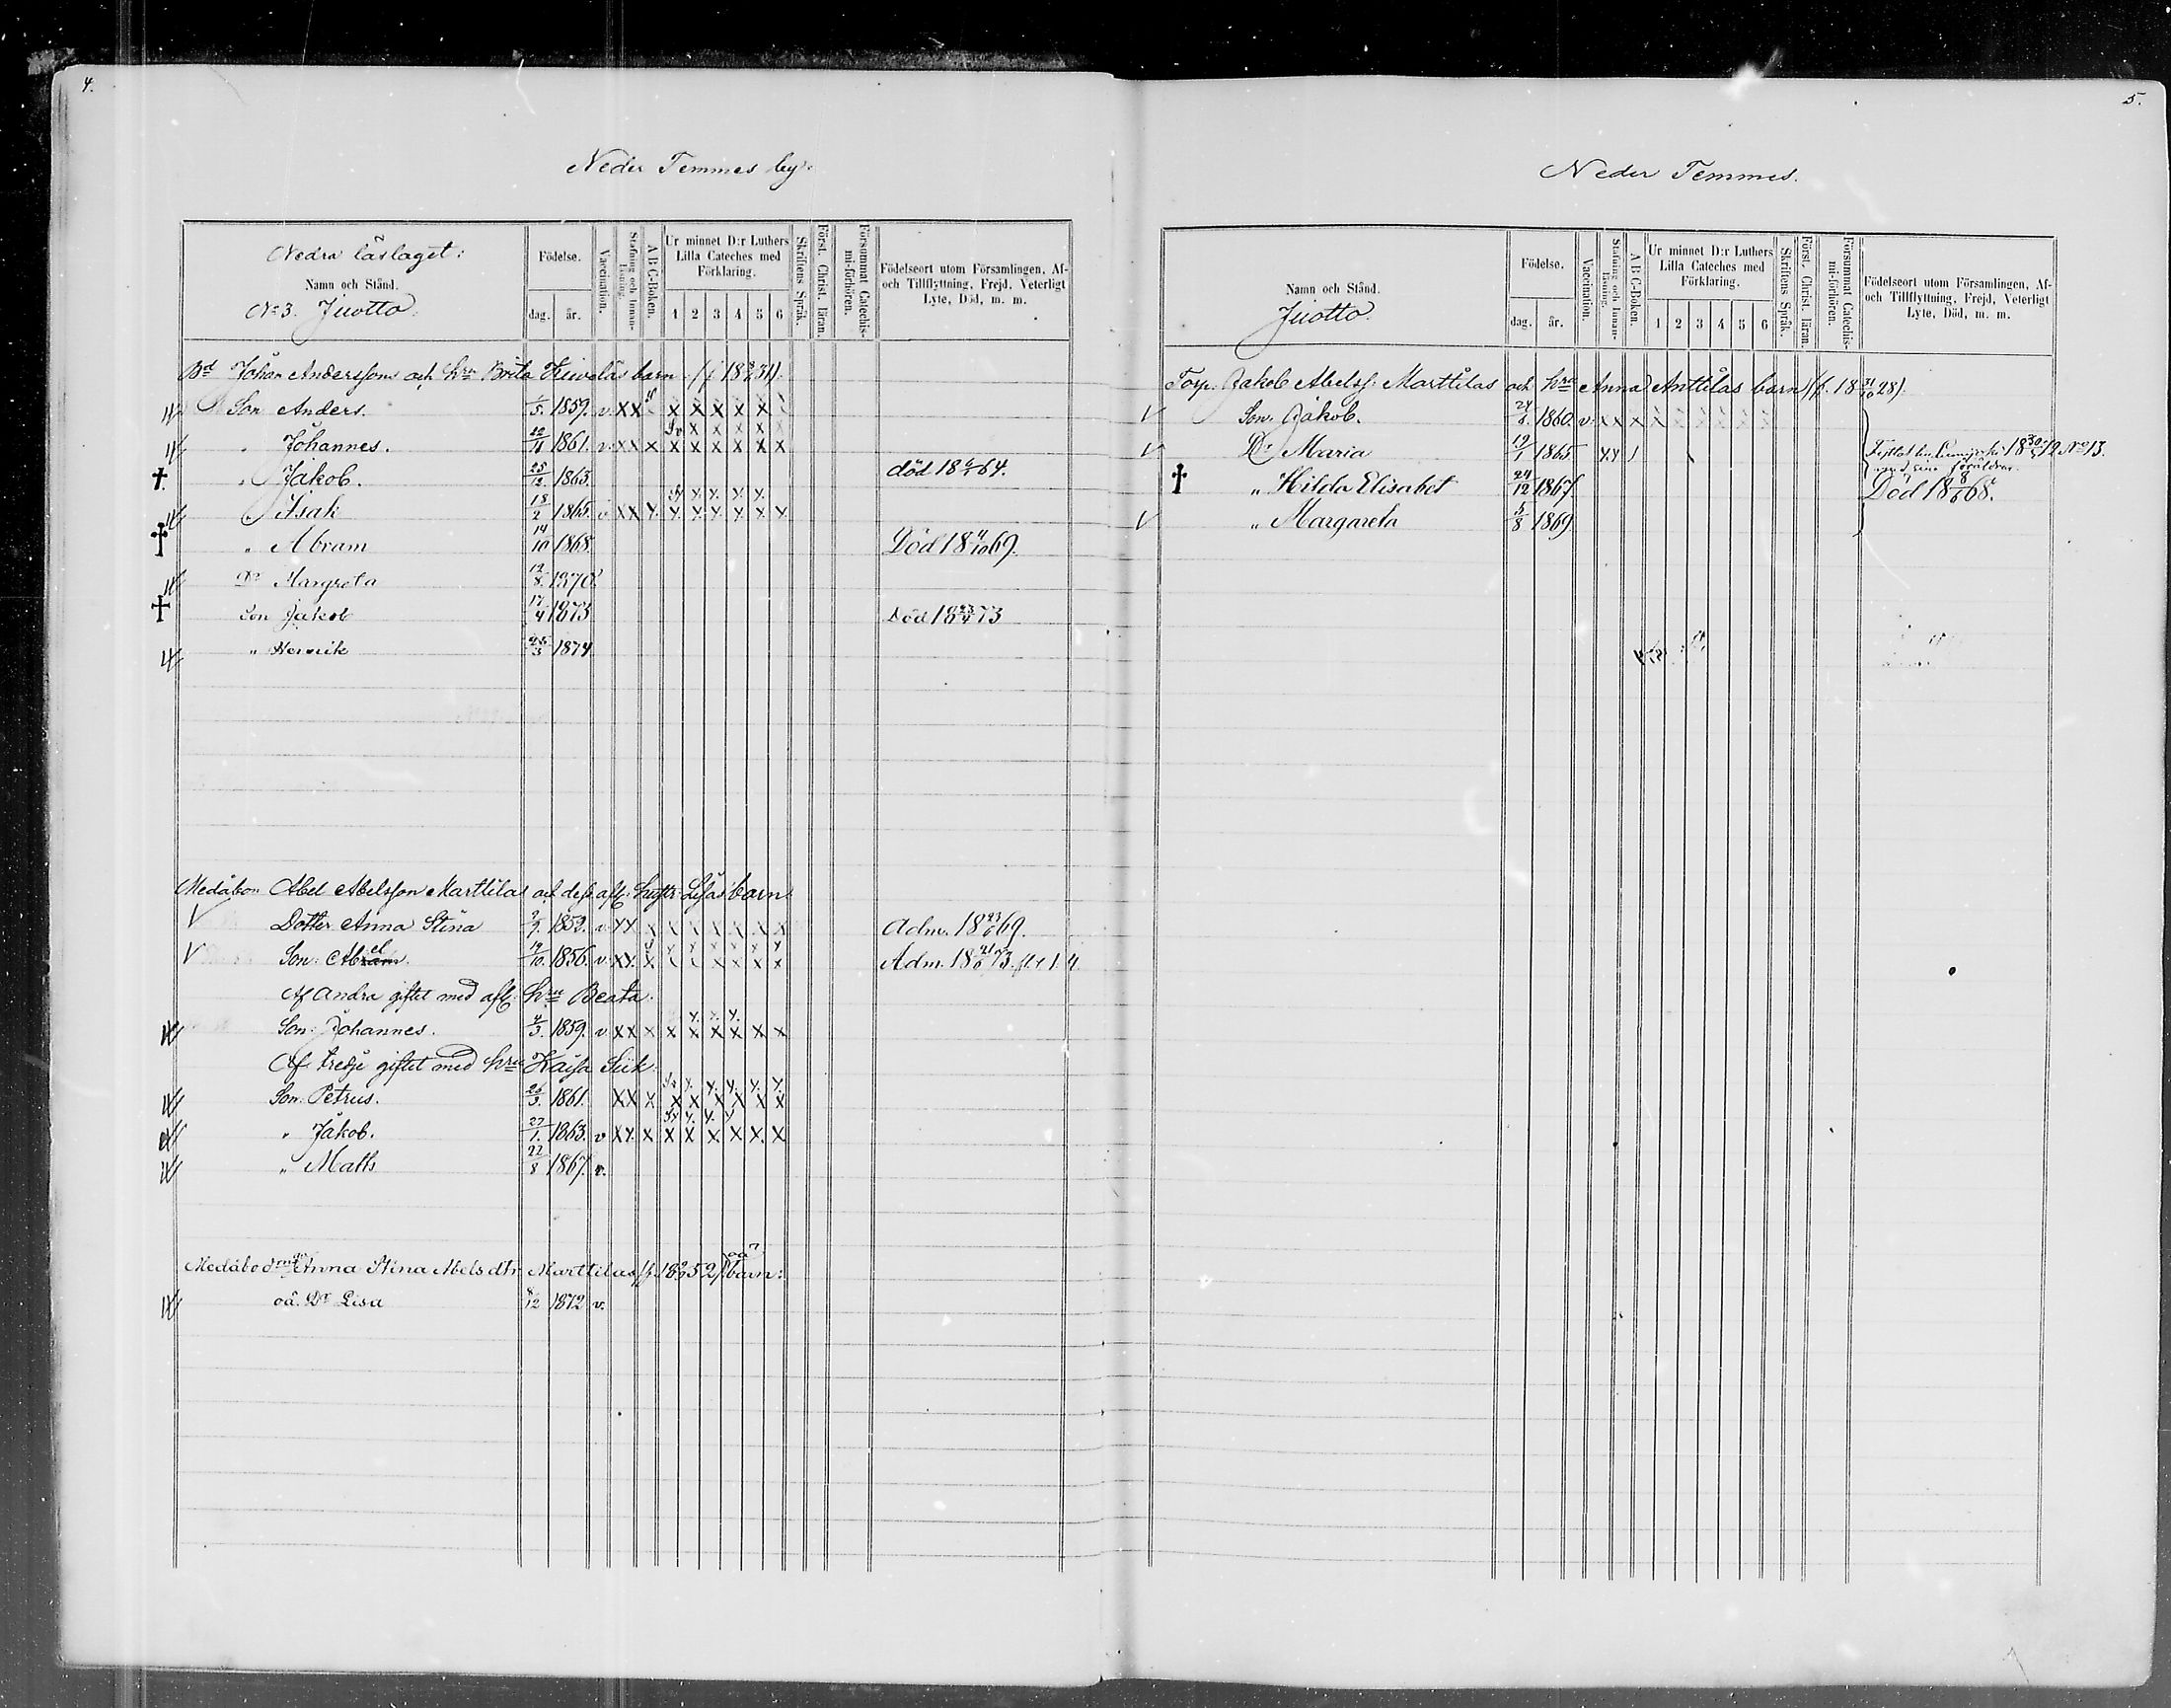 4.
Neder Temmes by.
Nedra läslaget:
Namn och Stånd.
No 3. Juotto.
Födelse.
dag. år.
Vaccination.
Stafning och Innan-läsning.
A B C-Boken.
Ur minnet D:r Luthers Lilla Cateches med Förklaring.
1 2 3 4 5 6
Skriftens Språk.
Först. Christ. läran.
Försummat Catechis-mi-förhören.
Födelseort utom Församlingen, Af- och Tillflyttning, Frejd, Veterligt Lyte, Död, m. m.
Bd Johan Anderssons och hru Brita barn
Son Anders. 1/5. 1859. v. x x x x x x x
" Johannes. 12/11 1861. v. x x x x x x x x x
" Jakob. 25/12. 1863. död 64.
" Isak 18/2 1865. v x x
" Abram 14/10 1868. Död 18 4/10 69.
Dr Margreta 12/8. 1870.
Son Jakob 17/4 1873 Död 18 23/4 73
" Henrik 25/3 1874
Medåbon Abel Abelsson Marttilas och dess afl. hustr. Lisas barn
Dotter Anna Stina 1852. v. Adm. 18 23/6 69.
Son: Abel. 19/10. 1856. v. Adm. 73.
Af andra giftet med afl. hru Beata.
Son: Johannes. 4/3. 1859. v x x x x x x x x x
Af tredje giftet med hru Kaisa Siik
Son: Petrus. 26/3. 1861. x x x x x x x x x
" Jakob. 27/1. 1863. v x x x x x x x x x
" Matts 22/8 1867. v.
Anna Stina Abelsdtr Marttilas oä barn:
oä. Dr Lisa 8/12 1872 v.
5.
Neder Temmes.
Namn och Stånd.
Juotto.
Födelse.
dag. år.
Vaccination.
Stafning och Innan-läsning.
A B C-Boken.
Ur minnet D:r Luthers Lilla Cateches med Förklaring.
1 2 3 4 5 6
Skriftens Språk.
Först. Christ. läran.
Försummat Catechis-mi-förhören.
Födelseort utom Församlingen, Af- och Tillflyttning, Frejd, Veterligt Lyte, Död, m. m.
Torp. Jakob Abelss: Marttilas och hru Anna Anttilas barn (f. 18 31/10 28).
Son. Jakob. 24/8. 1860. v. x x x
Dr Maria 19/1 1865 No 13.
med sina föräldrar.
" Hilda Elisabet 24/12 1867. Död 18 8/6 68.
" Margareta 5/8 1869.